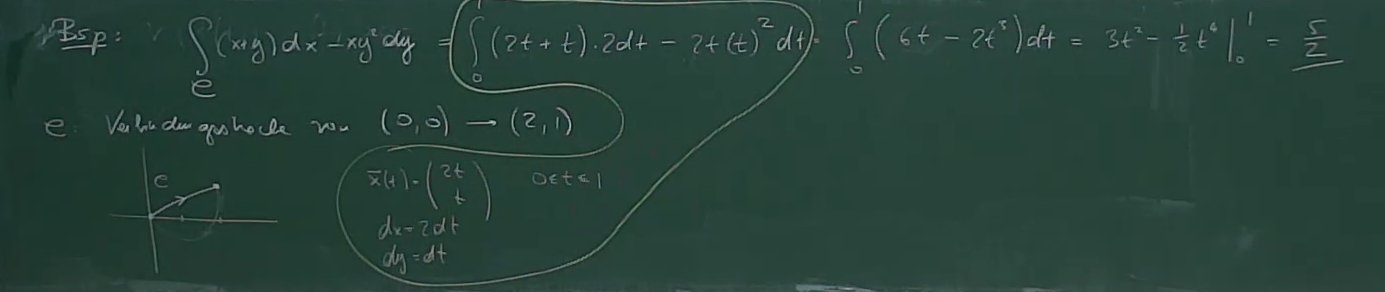 Bsp: ∫_C (x+y)dx - xy² dy = ∫₀¹ (2t + t)·2dt - 2t(t)² dt = ∫₀¹ (6t - 2t³)dt = 3t² - ½t⁴ |₀¹ = 5/2
C: Verbindungsstrecke von (0,0) → (2,1)
C
x̄(t) = (2t t) 0≤t≤1
dx = 2dt
dy = dt